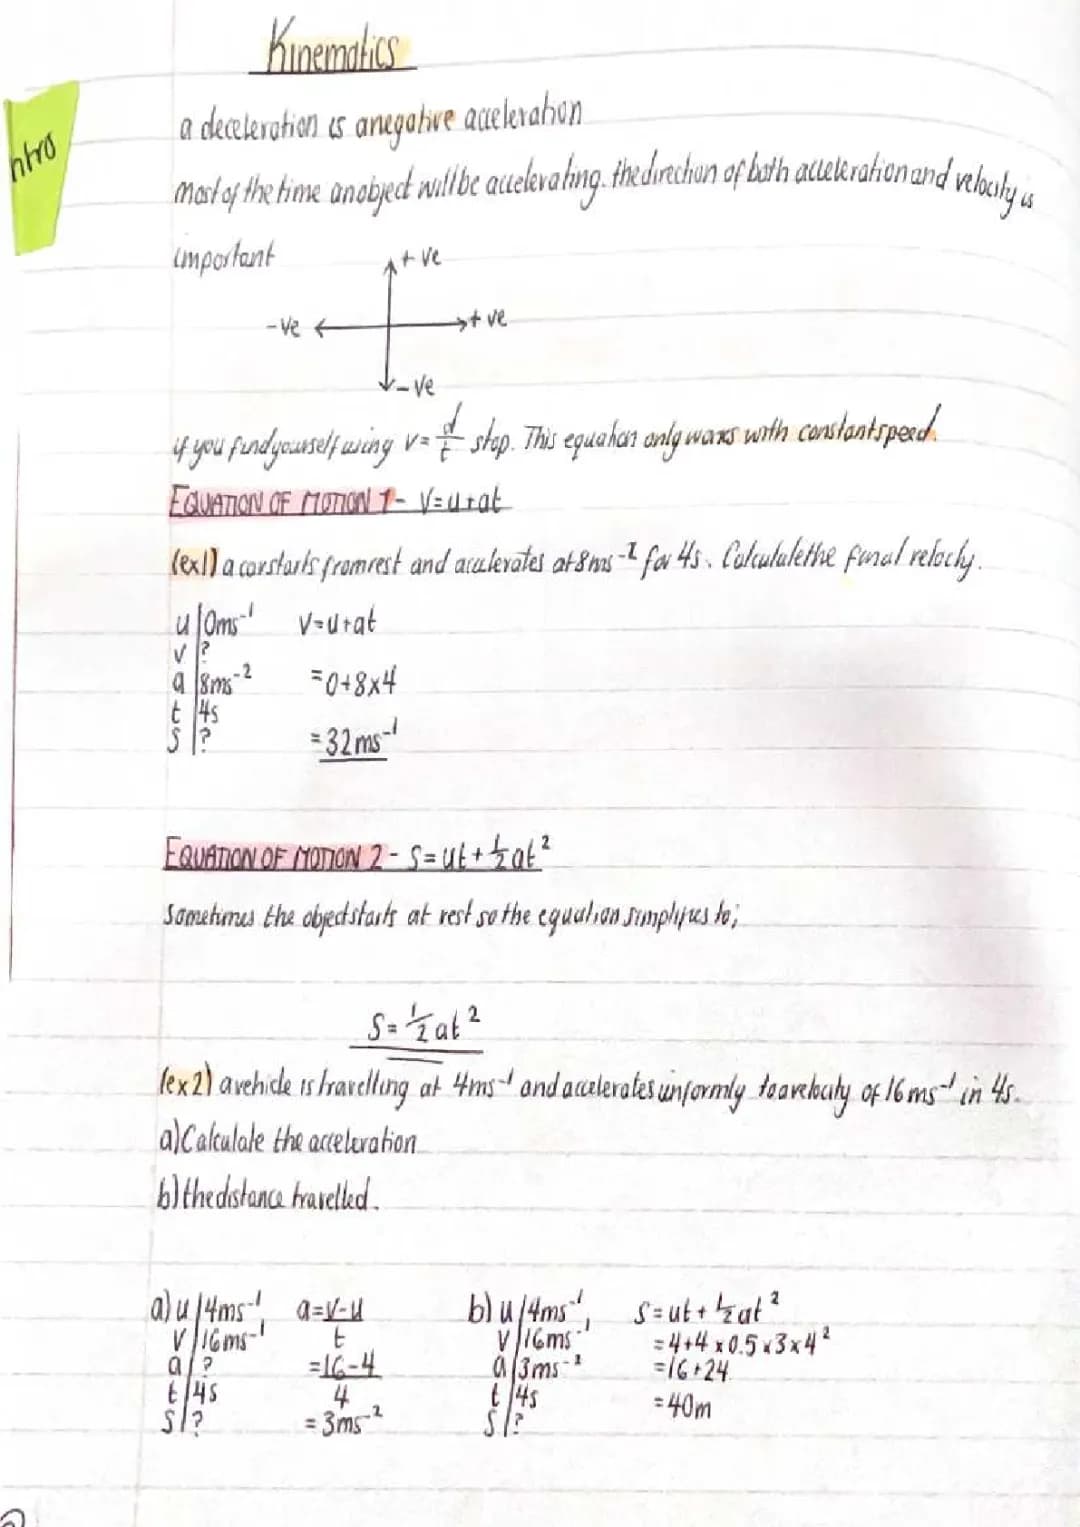 Kinematics
ntro
a deceleration is a negative acceleration
most of the time an object will be accelerating. the direction of both acceleration and velocity is
important
+ve
-ve
+ve
-ve
if you find yourself using v=d/t stop. This equation only works with constant speed.
EQUATION OF MOTION 1- V=u+at
(ex1) a car starts from rest and accelerates at 8ms⁻² for 4s. Calculate the final velocity.
u | 0ms⁻¹ V=u+at
v | ?
a | 8ms⁻² =0+8x4
t | 4s
S | ? =32ms⁻¹
EQUATION OF MOTION 2- S=ut+½at²
Sometimes the object starts at rest so the equation simplifies to;
S=½at²
(ex2) a vehicle is travelling at 4ms⁻¹ and accelerates uniformly to a velocity of 16ms⁻¹ in 4s.
a) Calculate the acceleration
b) the distance travelled.
a) u | 4ms⁻¹ a=v-u
V | 16ms⁻¹ t
a | ? =16-4
t | 4s 4
S | ? =3ms⁻²
b) u | 4ms⁻¹, S=ut+½at²
V | 16ms⁻¹ =4+4x0.5x3x4²
a | 3ms⁻² =16+24
t | 4s =40m
S | ?